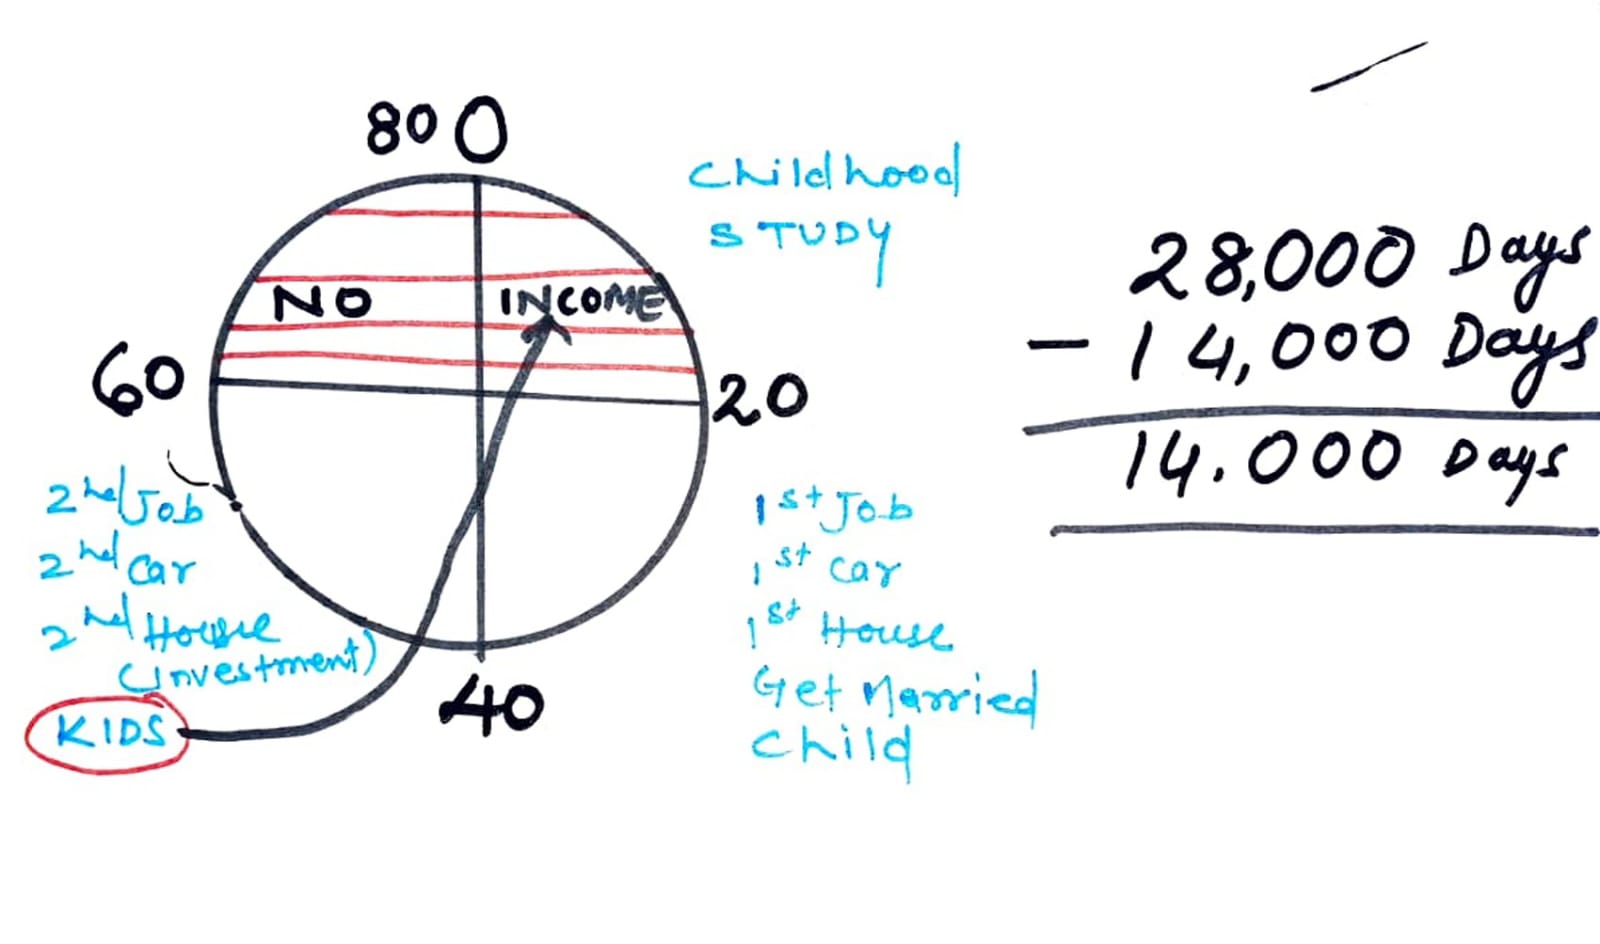 80 0
Childhood
STUDY
NO INCOME
60
20
2nd Job
2nd Car
2nd House
(investment)
KIDS
40
1st Job
1st Car
1st House
Get Married
Child
28,000 Days
- 14,000 Days
14.000 Days